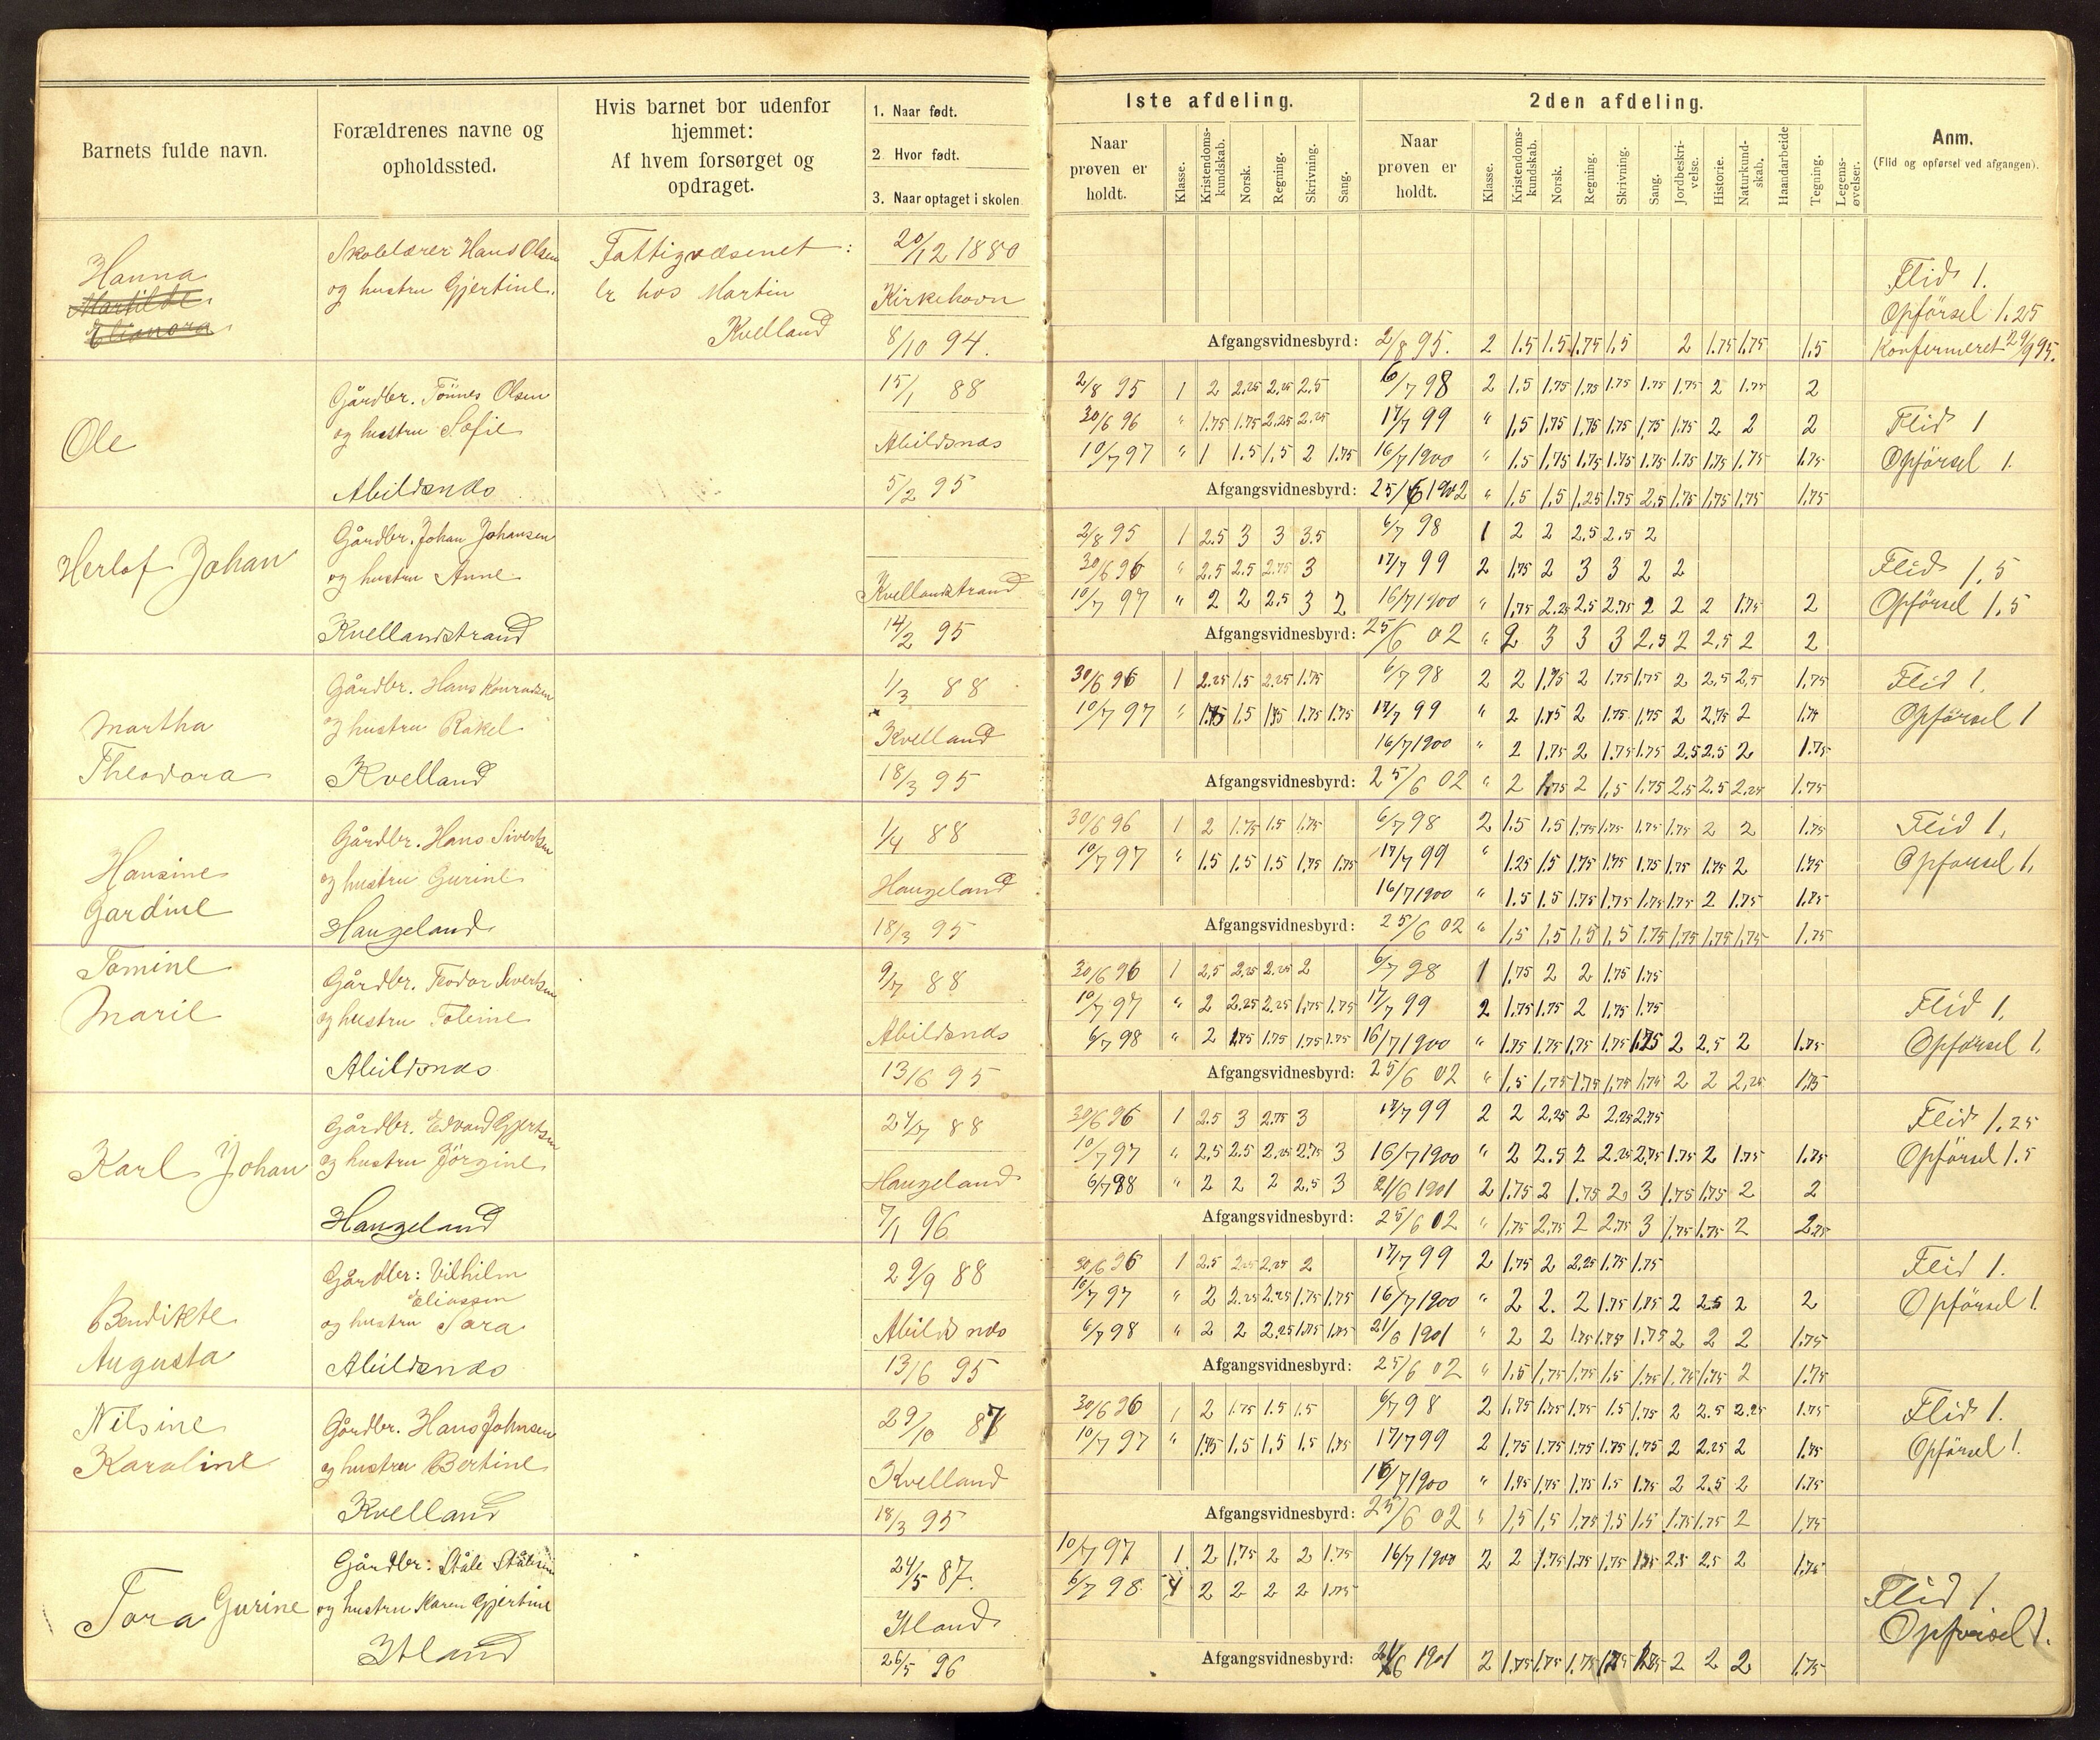 Barnets fulde navn.
Forældrenes navne og
opholdssted.
Hvis barnet bor udenfor
hjemmet:
Af hvem forsørget og
opdraget.
1. Naar født.
2 Hvor født.
3. Naar optaget i skolen
1ste afdeling.
2den afdeling.
Naar
prøven er
holdt.
Klasse.
Kristendoms-
kundskab.
Norsk.
Regning.
Skrivning.
Sang.
Naar
prøven er
holdt.
Klasse.
Kristendoms-
kundskab.
Norsk.
Regning.
Skrivning.
Sang.
Jordbeskri-
velse.
Historie.
Naturkund-
skab.
Haandarbeide
Tegning.
Legems-
øvelser.
Anm.
(Flid og opførsel ved afgangen).
Hanna
Martilde
Elianora
Skolelærer Hans Olsen
og hustru Gjertine.
Fattigvæsenet:
er hos Martin
Kvelland
20/12 1880
Kirkehavn
8/10 94.
Afgangsvidnesbyrd: 2/8 95. 2 1.5 1.5 1.75 1.5 2 1.75 1.75 1.5
Flid 1.
Opførsel 1.25
Konfirmeret 29/9 95.
Ole
Gårdbr. Tönnes Olsen
og hustru Sofie
Abildsnæs
15/1 88
Abildsnæs
5/2 95
2/8 95 1 2 2.25 2.25 2.5 6/7 98 2 1.5 1.75 1.75 1.75 1.75 1.75 2 1.75 2
30/6 96 " 1.75 1.75 2.25 2.25 17/7 99 " 1.5 1.75 1.75 1.75 1.75 1.75 2 2 2
10/7 97 " 1 1.5 1.5 2 1.75 16/7 1900 " 1.5 1.75 1.75 1.75 1.75 1.75 1.75 1.75 1.75
Afgangsvidnesbyrd: 25/6 1902 " 1.5 1.5 1.25 1.75 2.5 1.75 1.75 1.75 1.75
Flid 1
Opførsel 1.
Herlof Johan
Gårdbr. Johan Johansen
og hustru Anne
Kvellandstrand
Kvellandstrand
14/2 95
2/8 95 1 2.5 3 3 3.5 6/7 98 1 2 2 2.5 2.5 2
30/6 96 " 2.5 2.5 2.75 3 17/7 99 2 1.75 2 3 3 2 2
10/7 97 " 2 2 2.5 3 2 16/7 1900 " 1.75 2.25 2.5 2.75 2 2 2 1.75 2
Afgangsvidnesbyrd: 25/6 02 " 2 3 3 3 2.5 2 2.5 2 2
Flid 1.5
Opførsel 1.5
Martha
Theodora
Gårdbr. Hans Konradsen
og hustru Rakel
Kvelland
1/3 88
Kvelland
18/3 95
30/6 96 1 2.25 1.5 2.25 1.75 6/7 98 2 2 1.75 2 1.75 1.75 2 2.5 2.5 1.75
10/7 97 " 1.75 1.5 1.75 1.75 1.75 17/7 99 " 2 1.75 2 1.75 1.75 2 2.75 2 1.75
16/7 1900 " 2 1.75 2 1.75 1.75 2.5 2.5 2 1.75
Afgangsvidnesbyrd: 25/6 02 " 2 1.75 2 1.5 1.75 2.5 2.5 2.25 1.75
Flid 1.
Opførsel 1
Hansine
Gardine
Gårdbr. Hans Sivertsen
og hustru Gurine
Haugeland
1/4 88
Haugeland
18/3 95
30/6 96 1 2 1.75 1.5 1.75 6/7 98 2 1.5 1.5 1.75 1.75 1.75 1.75 2 2 1.75
10/7 97 " 1.5 1.5 1.5 1.75 1.75 17/7 99 " 1.25 1.5 1.75 1.75 1.75 1.75 1.75 2 1.75
16/7 1900 " 1.5 1.5 1.75 1.75 1.75 1.75 2 1.75 1.75
Afgangsvidnesbyrd: 25/6 02 " 1.5 1.5 1.5 1.5 1.75 1.75 1.75 1.75 1.75
Flid 1.
Opførsel 1.
Tomine
Marie
Gårdbr. Teodor Sivertsen
og hustru Toleine
Abildsnæs
9/7 88
Abildsnæs
13/6 95
30/6 96 1 2.5 2.25 2.25 2 6/7 98 1 1.75 2 2 1.75 1.75
10/7 97 " 2 2.25 2.25 1.75 1.75 17/7 99 2 1.75 1.75 2 1.75 1.75
6/7 98 " 2 1.75 1.75 1.75 1.75 16/7 1900 " 1.75 1.75 1.75 1.75 1.75 2 2.5 2 1.75
Afgangsvidnesbyrd: 25/6 02 " 1.5 1.75 1.75 1.75 1.75 2 2 2.25 1.75
Flid 1.
Opførsel 1.
Karl Johan
Gårdbr. Edvard Gjertsen
og hustru Jörgine
Haugeland
24/7 88
Haugeland
7/1 96
30/6 96 1 2.5 3 2.75 3 17/7 99 2 2 2.25 2 2.25 2.75
10/7 97 " 2.5 2.5 2.25 2.75 3 16/7 1900 " 2 2.5 2 2.25 2.75 1.75 2 1.75 1.75
6/7 98 " 2 2 2 2.5 3 21/6 1901 2 1.75 2 1.75 2 3 1.75 1.75 2 2
Afgangsvidnesbyrd: 25/6 02 " 1.75 2.75 2 2.75 3 1.75 1.75 2 2.25
Flid 1.25
Opførsel 1.5
Bendikte
Augusta
Gårdbr: Vilhilm
Eliassen
og hustru Sara
Abildsnæs
29/9 88
Abildsnæs
13/6 95
30/6 96 1 2.5 2.25 2.25 2 17/7 99 2 1.75 2 2.25 1.75 1.75
10/7 97 " 2 2.25 2.25 1.75 1.75 16/7 1900 " 2 2. 2 1.75 1.75 2 2.5 2 2
6/7 98 " 2 2 2.25 1.75 1.75 21/6 1901 " 2 2 1.75 1.75 1.75 2 2 2 1.75
Afgangsvidnesbyrd: 25/6 02 " 1.5 1.75 1.75 1.5 1.75 1.75 1.75 2 1.75
Flid 1.
Opførsel 1.
Nilsine
Karoline
Gårdbr. Hans Johnsen
og hustru Bertine
Kvelland
29/10 87
Kvelland
18/3 95
30/6 96 1 2 1.75 1.5 1.5 6/7 98 2 1.75 1.75 1.75 1.5 1.75 2 2.5 2.25 1.75
10/7 97 " 1.75 1.5 1.5 1.5 1.75 17/7 99 2 1.75 1.75 1.75 1.75 1.75 2 2.25 2 1.75
16/7 1900 " 1.75 1.75 1.75 1.5 1.75 2 2.5 2 1.75
Afgangsvidnesbyrd: 25/6 02 " 1.5 1.5 1.75 1.5 1.5 1.75 1.75 2 1.75
Flid 1.
Opførsel 1.
Tora Gurine
Gårdbr: Ståle Ståles
og hustru Karen Gjertine
Ytland
24/5 87.
Ytland
26/5 96
10/7 97 1 2 1.75 2 2 1.75 16/7 1900 2 2 1.75 1.75 1.75 1.75 2.5 2.5 2 1.75
6/7 98 2 2 2 2 1.75
Afgangsvidnesbyrd: 21/6 1901 2 1.75 1.75 1.75 1.75 1.75 2 2 2 1.75
Flid 1.
Opførsel 1.